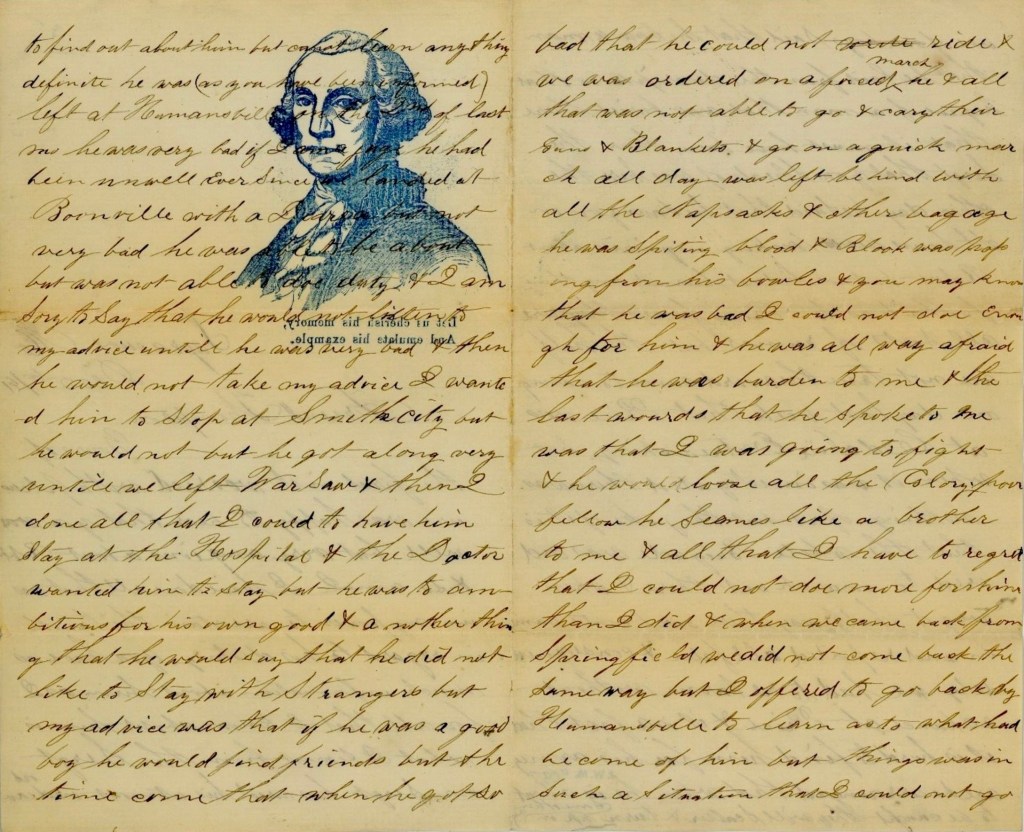 to find out about him but canot learn any thing
definite he was (as you have been informed)
left at Humansville on the of last
he was very bad if I he had
been unwell Ever Since we landed at
Boonville with a but not
very bad he was able to be about
but was not able to doe duty & I am
Sory to Say that he would not listen to
my advice untill he was very bad & then
he would not take my advice I wante
d him to Stop at Smith City but
he would not but he got along very
untill we left WarSaw & then I
done all that I could to have him
Stay at the Hospital & the Doctor
wanted him to Stay but he was to am-
bitious for his own good & a nother thin
g that he would say that he did not
like to Stay with Strangers but
my advice was that if he was a good
boy he would find friends but the
time come that when he got so
Let us cherish his memory,
And emulate his example.
bad that he could not wrote ride &
march
we was ordered on a forced he & all
that was not able to go & cary their
Guns & Blankets & go on a quick mar
ch all day was left behind with
all the Napsacks & other bagage
he was Spiting blood & Blood was
ing from his bowles & you may know
that he was bad I could not doe enou
gh for him & he was all way afraid
that he was burden to me & the
last wourds that he Spoke to me
was that I was going to fight
& he would loose all the Glory poor
fellow he Seemes like a brother
to me & all that I have to regret
that I could not doe more for him
than I did & when we came back from
Springfield we did not come back the
Same way but I offered to go back by
Humansville to learn as to what had
become of him but things was in
Such a Situation that I could not go